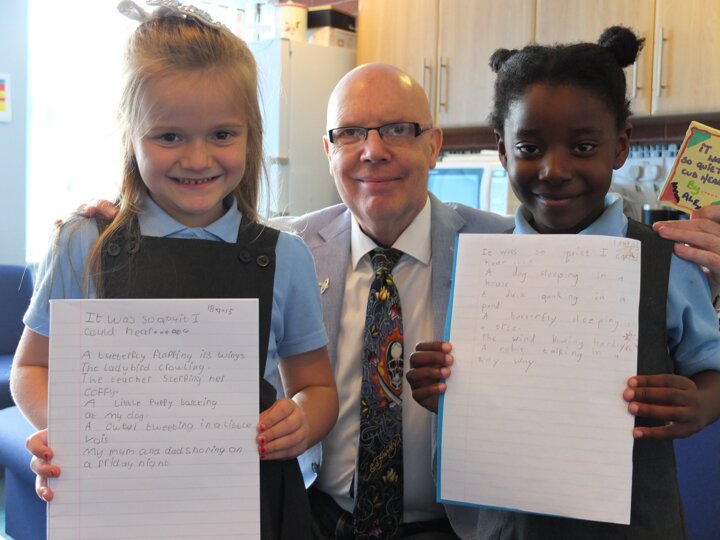 18-9-15
It was so qouit I
could hear......
A butterfly flaffing its wings
The Ladybird Crowling.
The teacher sterring her
coffy.
A Little Puppy barcking
at my dog.
A owtal tweeting in a little
vois
My mum and dad shoring on
a friday night
It was so quiet I
hear ....
A dog sleeping in a
house
A duck quaking in a
pond
A butterfly sleeping
a tree.
The wind
A robot talking in
tiny
IT WAS
SO QUIET
By